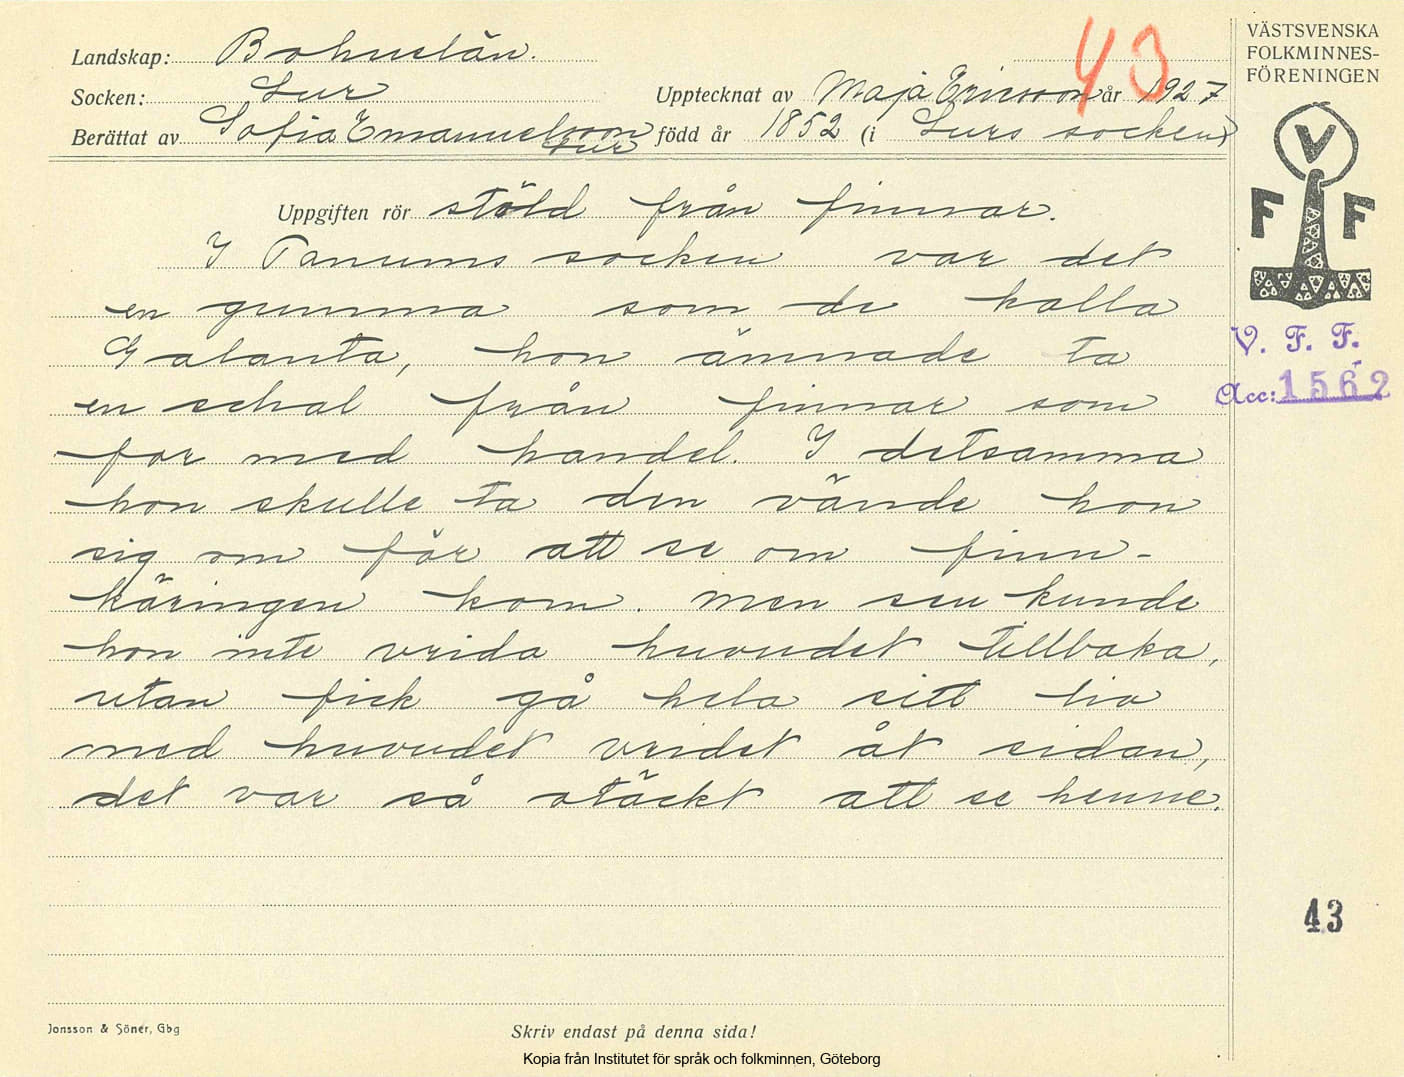 Landskap: Bohuslän.
Socken: Lur
Upptecknat av Maja Ericsson år 1927
Berättat av Sofia Emanuelsson Lur född år 1852 (i Lurs socken)
43
VÄSTSVENSKA
FOLKMINNES-
FÖRENINGEN
V
F F
V. F. F.
Acc: 1562
Uppgiften rör stöld från finnar.
I Tanums socken var det
en gumma som de kalla
Galanta, hon ämnade ta
en schal från finnar som
for med handel. I detsamma
hon skulle ta den vände hon
sig om för att se om finn-
käringen kom. men sen kunde
hon inte vrida huvudet tillbaka,
utan fick gå hela sitt liv
med huvudet vridet åt sidan,
det var så otäckt att se henne.
43
Jonsson & Söner, Gbg
Skriv endast på denna sida!
Kopia från Institutet för språk och folkminnen, Göteborg